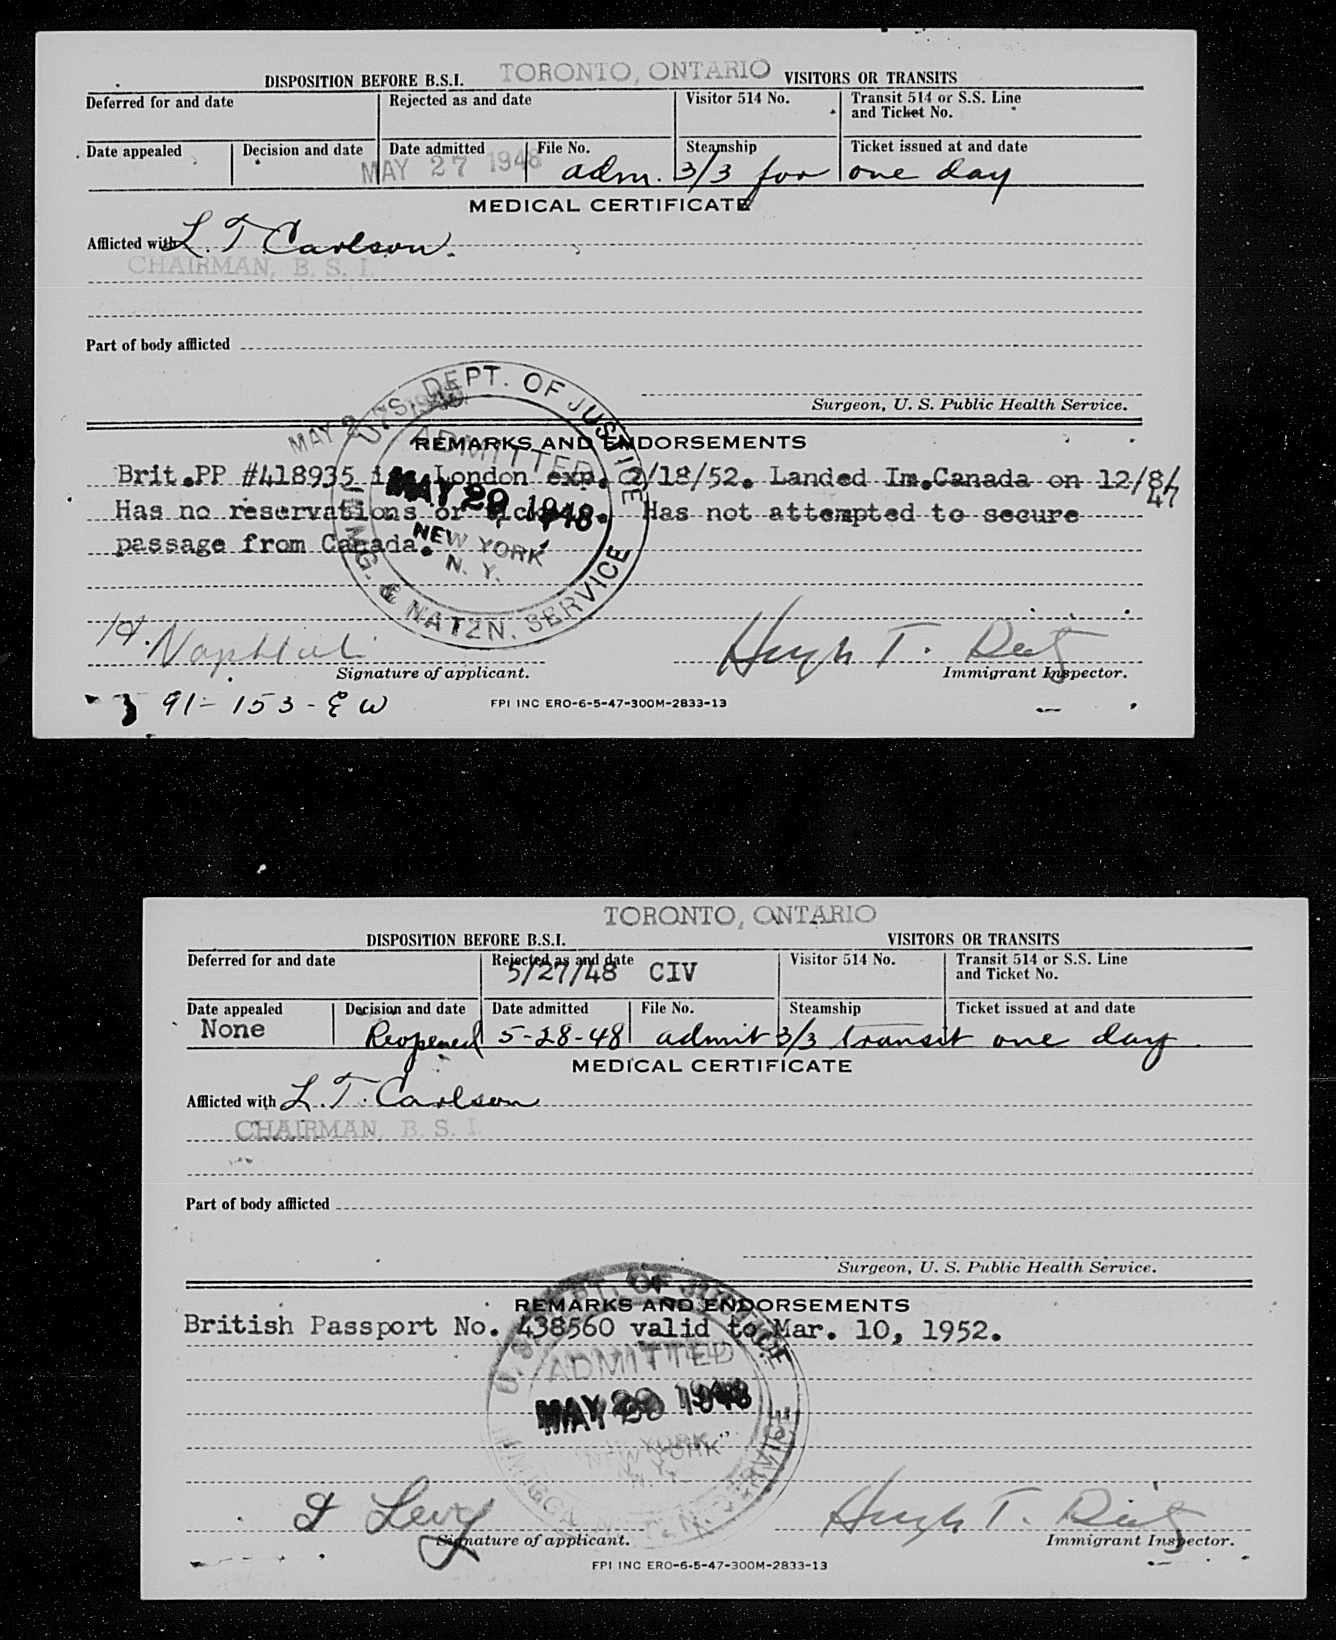 TORONTO, ONTARIO
DISPOSITION BEFORE B.S.I. VISITORS OR TRANSITS
Deferred for and date Rejected as and date Visitor 514 No. Transit 514 or S.S. Line
and Ticket No.
Date appealed Decision and date Date admitted File No. Steamship Ticket issued at and date
MAY 27 1948 adm. 3/3 for one day
MEDICAL CERTIFICATE
Afflicted with L. T. Carlson.
CHAIRMAN, B. S. I.
Part of body afflicted
Surgeon, U. S. Public Health Service.
MAY 27 1948
U. S. DEPT. OF JUSTICE
ADMITTED
MAY 29 1948
NEW YORK
N. Y.
IMMIG. & NATZN. SERVICE
REMARKS AND ENDORSEMENTS
Brit.PP #418935 London exp. 2/18/52. Landed Im.Canada on 12/8/
47
Has no reservations or Has not attempted to secure
passage from Canada.
H. Naphtali Hugh T.
Signature of applicant. Immigrant Inspector.
91-153-EW
FPI INC ERO-6-5-47-300M-2833-13
TORONTO, ONTARIO
DISPOSITION BEFORE B.S.I. VISITORS OR TRANSITS
Deferred for and date Rejected as and date Visitor 514 No. Transit 514 or S.S. Line
5/27/48 CIV and Ticket No.
Date appealed Decision and date Date admitted File No. Steamship Ticket issued at and date
None Reopened 5-28-48 admit 3/3 transit one day.
MEDICAL CERTIFICATE
Afflicted with L. T. Carlson
CHAIRMAN, B. S. I.
Part of body afflicted
Surgeon, U. S. Public Health Service.
REMARKS AND ENDORSEMENTS
British Passport No. 438560 valid to Mar. 10, 1952.
U. S. DEPT. OF JUSTICE
ADMITTED
MAY 29 1948
NEW YORK
N. Y.
Levy Hugh T.
Signature of applicant. Immigrant Inspector.
FPI INC ERO-6-5-47-300M-2833-13